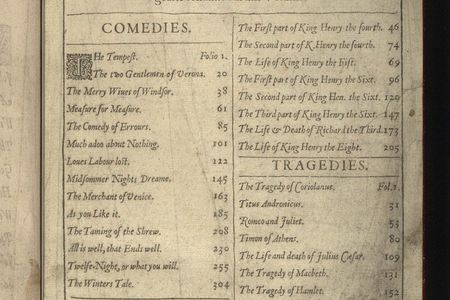 COMEDIES.
The Tempest. Folio 1.
The two Gentlemen of Verona. 20
The Merry Wiues of Windsor. 38
Measure for Measure. 61
The Comedy of Errours. 85
Much adoo about Nothing. 101
Loues Labour lost. 122
Midsommer Nights Dreame. 145
The Merchant of Venice. 163
As you Like it. 185
The Taming of the Shrew. 208
All is well, that Ends well. 230
Twelfe-Night, or what you will. 255
The Winters Tale. 304
The First part of King Henry the fourth. 46
The Second part of K. Henry the fourth. 74
The Life of King Henry the Fift. 69
The First part of King Henry the Sixt. 96
The Second part of King Hen. the Sixt. 120
The Third part of King Henry the Sixt. 147
The Life & Death of Richard the Third. 173
The Life of King Henry the Eight. 205
TRAGEDIES.
The Tragedy of Coriolanus. Fol. 1.
Titus Andronicus. 31
Romeo and Juliet. 53
Timon of Athens. 80
The Life and death of Julius Cæsar. 109
The Tragedy of Macbeth. 131
The Tragedy of Hamlet. 152